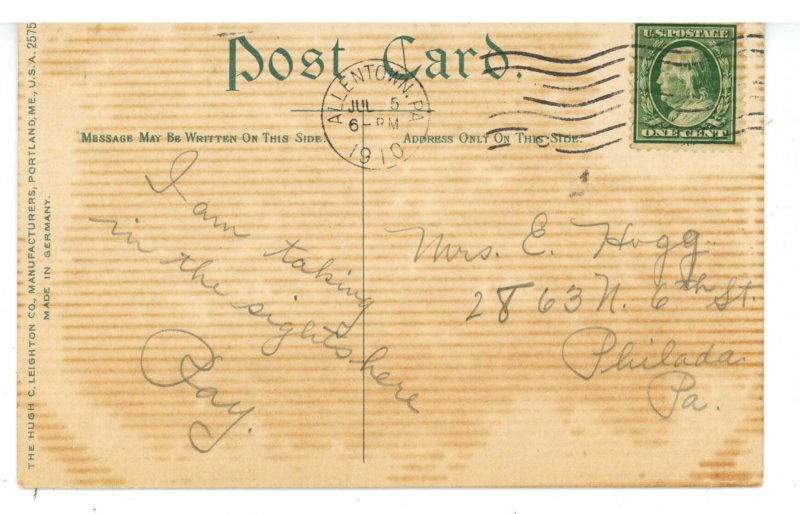 Post Card.
U.S.POSTAGE
ONE CENT
ALLENTOWN, PA
JUL 5
6- PM
1910
MESSAGE MAY BE WRITTEN ON THIS SIDE.
ADDRESS ONLY ON THIS SIDE.
I am taking
in the sights here
Ray.
Mrs. E. Hogg.
2863 N. 6th St.
Philada.
Pa.
THE HUGH C. LEIGHTON CO., MANUFACTURERS, PORTLAND, ME., U.S.A. 2575
MADE IN GERMANY.